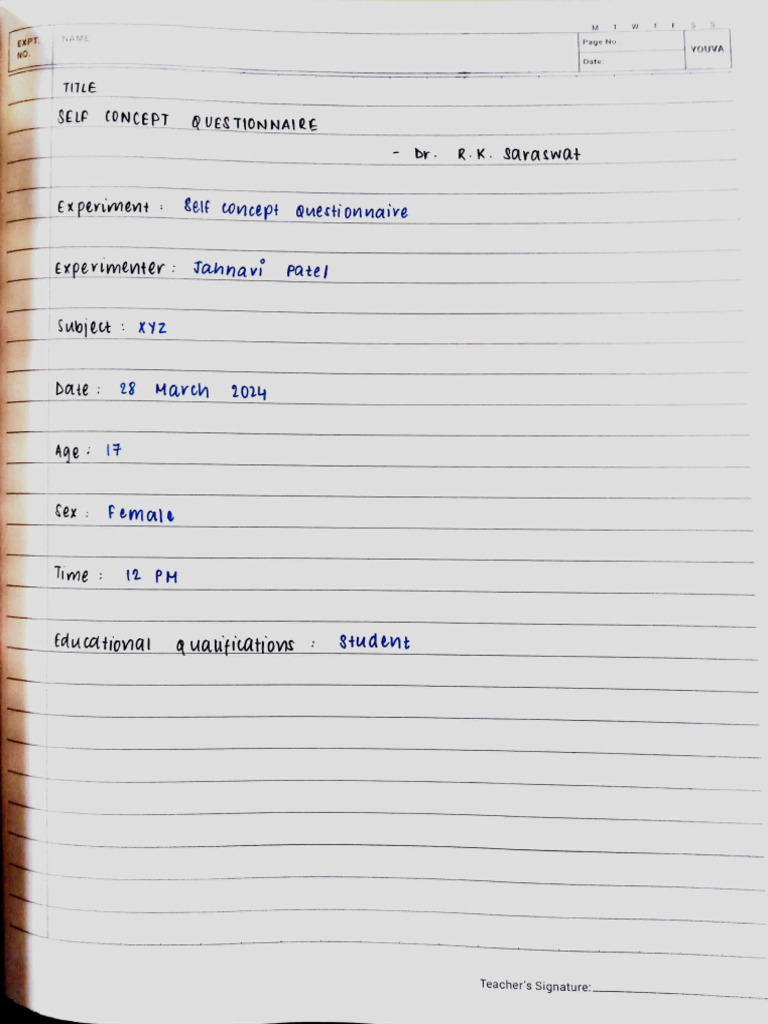 M T W T F S S
EXPT. NO.
NAME
Page No
Date:
YOUVA
TITLE
SELF CONCEPT QUESTIONNAIRE
- Dr. R.K. Saraswat
Experiment : Self concept Questionnaire
Experimenter : Jahnavi Patel
Subject : XYZ
Date : 28 March 2024
Age : 17
Sex : Female
Time : 12 PM
Educational qualifications : Student
Teacher's Signature: